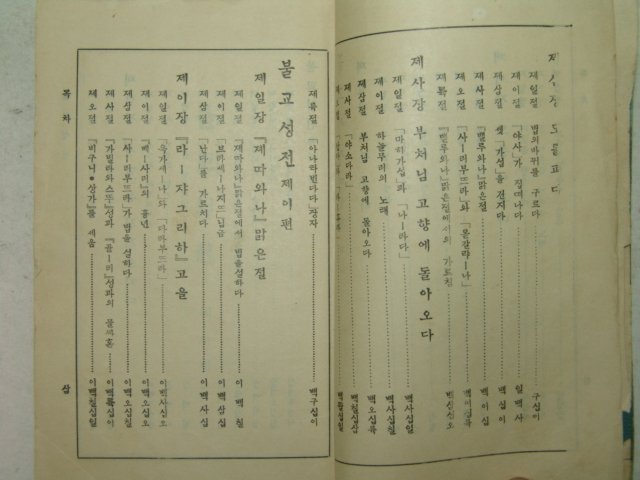 제일절 법의바퀴를 구르다 구십이
제이절 「야사」가 집떠나다 일백사
제삼절 셋「가섭」을 건지다 백십이
제사절 「뺄루와나」맑은절 백이십
제오절 「사ー리뿌뜨라」와「몯갈랴ー나」 백이십륙
제륙절 「뺄루와나」맑은절에서의 가르침
제사장 부처님 고향에 돌아오다
제일절 「마하가섭」과 「나ー라다」 백사십일
제이절 하늘무리의 노래 백사십칠
제삼절 부처님 고향에 돌아오다 백오십륙
제사절 「야소다라」 백칠십삼
제륙절 「아나따삔다다」장자 백구십이
불교성전 제이편
제일장 『제따와나』맑은절
제일절 「제따와나」맑은절에서 법을설하다 이백칠
제이절 「쁘라쎄ー나지뜨」님금 이백삼십
제삼절 난다를 가르치다 이백사십
제이장 『라ー쟈그리하』고을
제일절 이백사십오
제이절 「뻬ー사리」의 흉년 이백오십오
제삼절 「사ー리뿌뜨라」가 법을 설하다 이백오십
제사절 「가삘라와스뚜」성과 「꼴ー리」성과의 물싸홈 이백륙십이
제오절 「비구니・상가」를 세움 이백칠십일
목차 삼